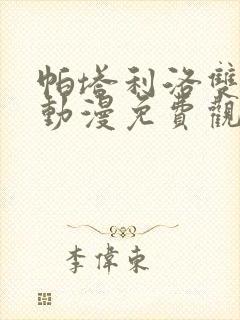 帕塔利洛雙
動漫免費觀
李偉東